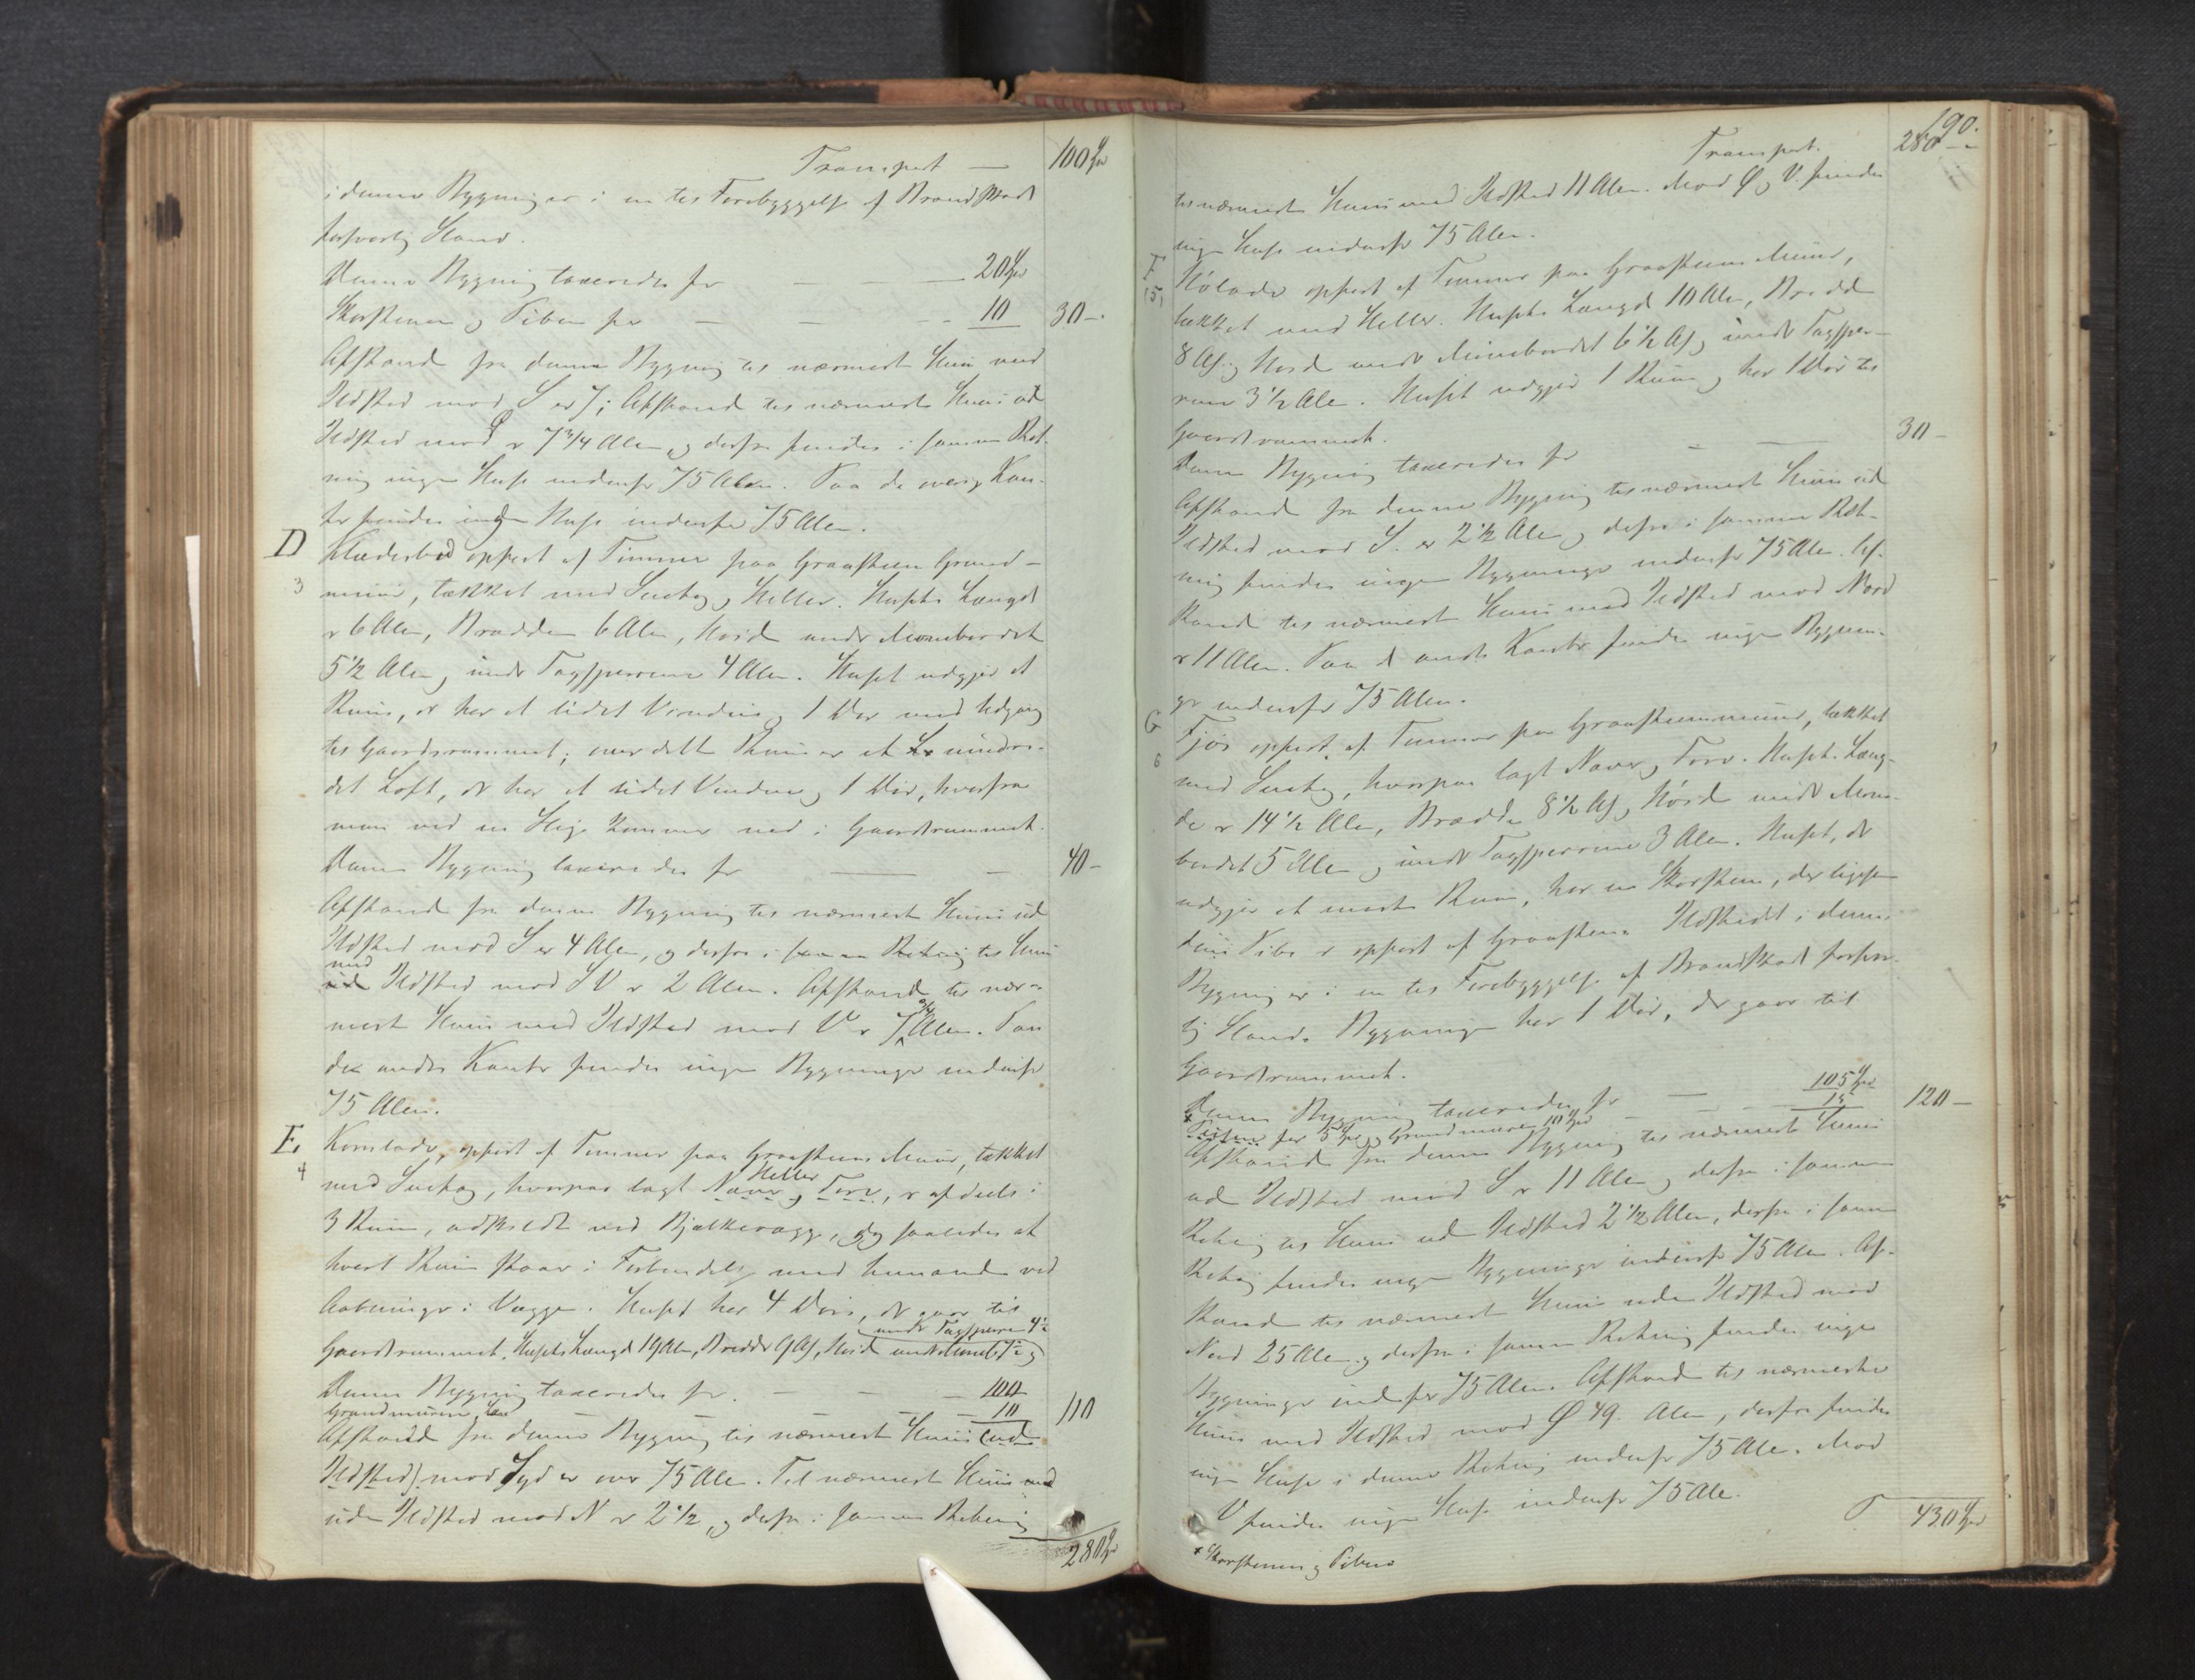 Transport — 100 Spd
i denne Bygning er i en til Forebyggelse af Brandskade
forsvarlig Stand.
Denne Bygning taxeredes for — — — 20 Spd
Skorstenen og Piben for — — — 10 30 -
Afstand fra denne Bygning til nærmeste Huus med
Ildsted mod S er 7; Afstand til nærmeste Huus ud
Ildsted mod Ø er 7 3/4 Alen, og derfra findes i samme Ret-
ning ingen Huse indenfor 75 Alen. Paa de øvrige Kan-
ter findes ingen Huse indenfor 75 Alen.
D Klædesbod opført af Tømmer paa Graasteens Grund-
3 muur, tækket med Sutag og Heller. Husets Længde
er 6 Alen, Bredden 6 Alen, Høide under Mønebordet
5 1/2 Alen og under Tagsperrerne 4 Alen. Huset udgjør et
Ruum, der har et lidet Vindue og 1 Dør med Udgang
til Gaardsrummet; over dette Ruum er et uindre-
det Loft, der har et lidet Vindue og 1 Dør, hvorfra
man ved en Stige kommer ned i Gaardsrummet.
Denne Bygning taxeredes for — — 40 -
Afstand fra denne Bygning til nærmeste Huus ud
Ildsted mod S er 4 Alen, og derfra i samme Retning til Huus
med
uden Ildsted mod SV er 2 Alen. Afstand til nær-
meste Huus med Ildsted mod V er 7 3/4 Alen. Paa
de andre Kanter findes ingen Bygninger indenfor
75 Alen.
E. Kornlade, opført af Tømmer paa Graasteens Muur, tækket
4 med Sutag, hvorpaa lagt Næver Heller og Torv, er afdeelt i
3 Ruum, adskildt ved Bjælkevægge, dog saaledes at
hvert Ruum staar i Forbindelse med hinanden ved
Aabninger i Vægge. Huset har 4 Døre, der gaar til
under Tagsperrer 4 1/2
Gaardsrummet. Husets Længde 19 Alen, Bredde 9 Al, Høide under Møneb. 7 1/2 og
Denne Bygning taxeredes for. — — — 100
Grundmuren for — — — 10 110
Afstand fra denne Bygning til nærmeste Huus (ud
Ildsted) mod Syd er over 75 Alen. Til nærmeste Huus
uden Ildsted mod N er 2 1/2, og derfra i samme Retning
280 Spd
190.
Transport. 280 -
til nærmeste Huus med Ildsted 11 Alen. Mod Ø og V. findes
ingen Huse indenfor 75 Alen.
F Hølade opført af Tømmer paa Graasteens Muur,
5 tækket med Heller. Husets Længde 10 Alen, Bredde
8 Al. og Høide under Mønebordet 6 1/2 Al og under Tagsper-
rerne 3 1/2 Alen. Huset udgjør 1 Ruum og har 1 Dør til
Gaardsrummet.
Denne Bygning taxeredes for — — 30 -
Afstand fra denne Bygning til nærmeste Huus ud
Ildsted mod S. er 2 1/2 Alen og derfra i samme Ret-
ning findes ingen Bygninger indenfor 75 Alen. Af-
stand til nærmeste Huus med Ildsted mod Nord
er 11 Alen. Paa de andre Kanter findes ingen Bygnin-
ger indenfor 75 Alen.
G Fjøs opført af Tømmer paa Graasteensmuur, tækket
6 med Sutag, hvorpaa lagt Næver og Torv. Husets Læng-
de er 14 1/2 Alen, Bredde 8 1/2 Al og Høide under Møne-
bordet 5 Alen og under Tagsperrerne 3 Alen. Huset, der
udgjør et eneste Ruum, har en Skorsteen, der ligesom
dens Pibe er opført af Graasteen. Ildstedet i denne
Bygning er i en til Forebyggelse af Brandskade forsvar-
lig Stand. Bygningen har 1 Dør, der gaar til
Gaardsrummet.
Denne Bygning taxeredes for — 105 Spd
* for 5 Spd og Grundmuren 10 Spd — — 15 120 —
Afstand fra denne Bygning til nærmeste Huus
ud Ildsted mod S er 11 Alen og derfra i samme
Retning til Huus ud Ildsted 2 1/2 Alen, derfra i samme
Retning findes ingen Bygninger indenfor 75 Alen. Af-
stand til nærmeste Huus uden Ildsted mod
Nord 25 Alen og derfra i samme Retning findes ingen
Bygninger indenfor 75 Alen. Afstand til nærmeste
Huus med Ildsted mod Ø 49. Alen, derfra findes
ingen Huse i denne Retning indenfor 75 Alen. Mod
V findes ingen Huse indenfor 75 Ale.
430 Spd
* Skorstenen og Piben